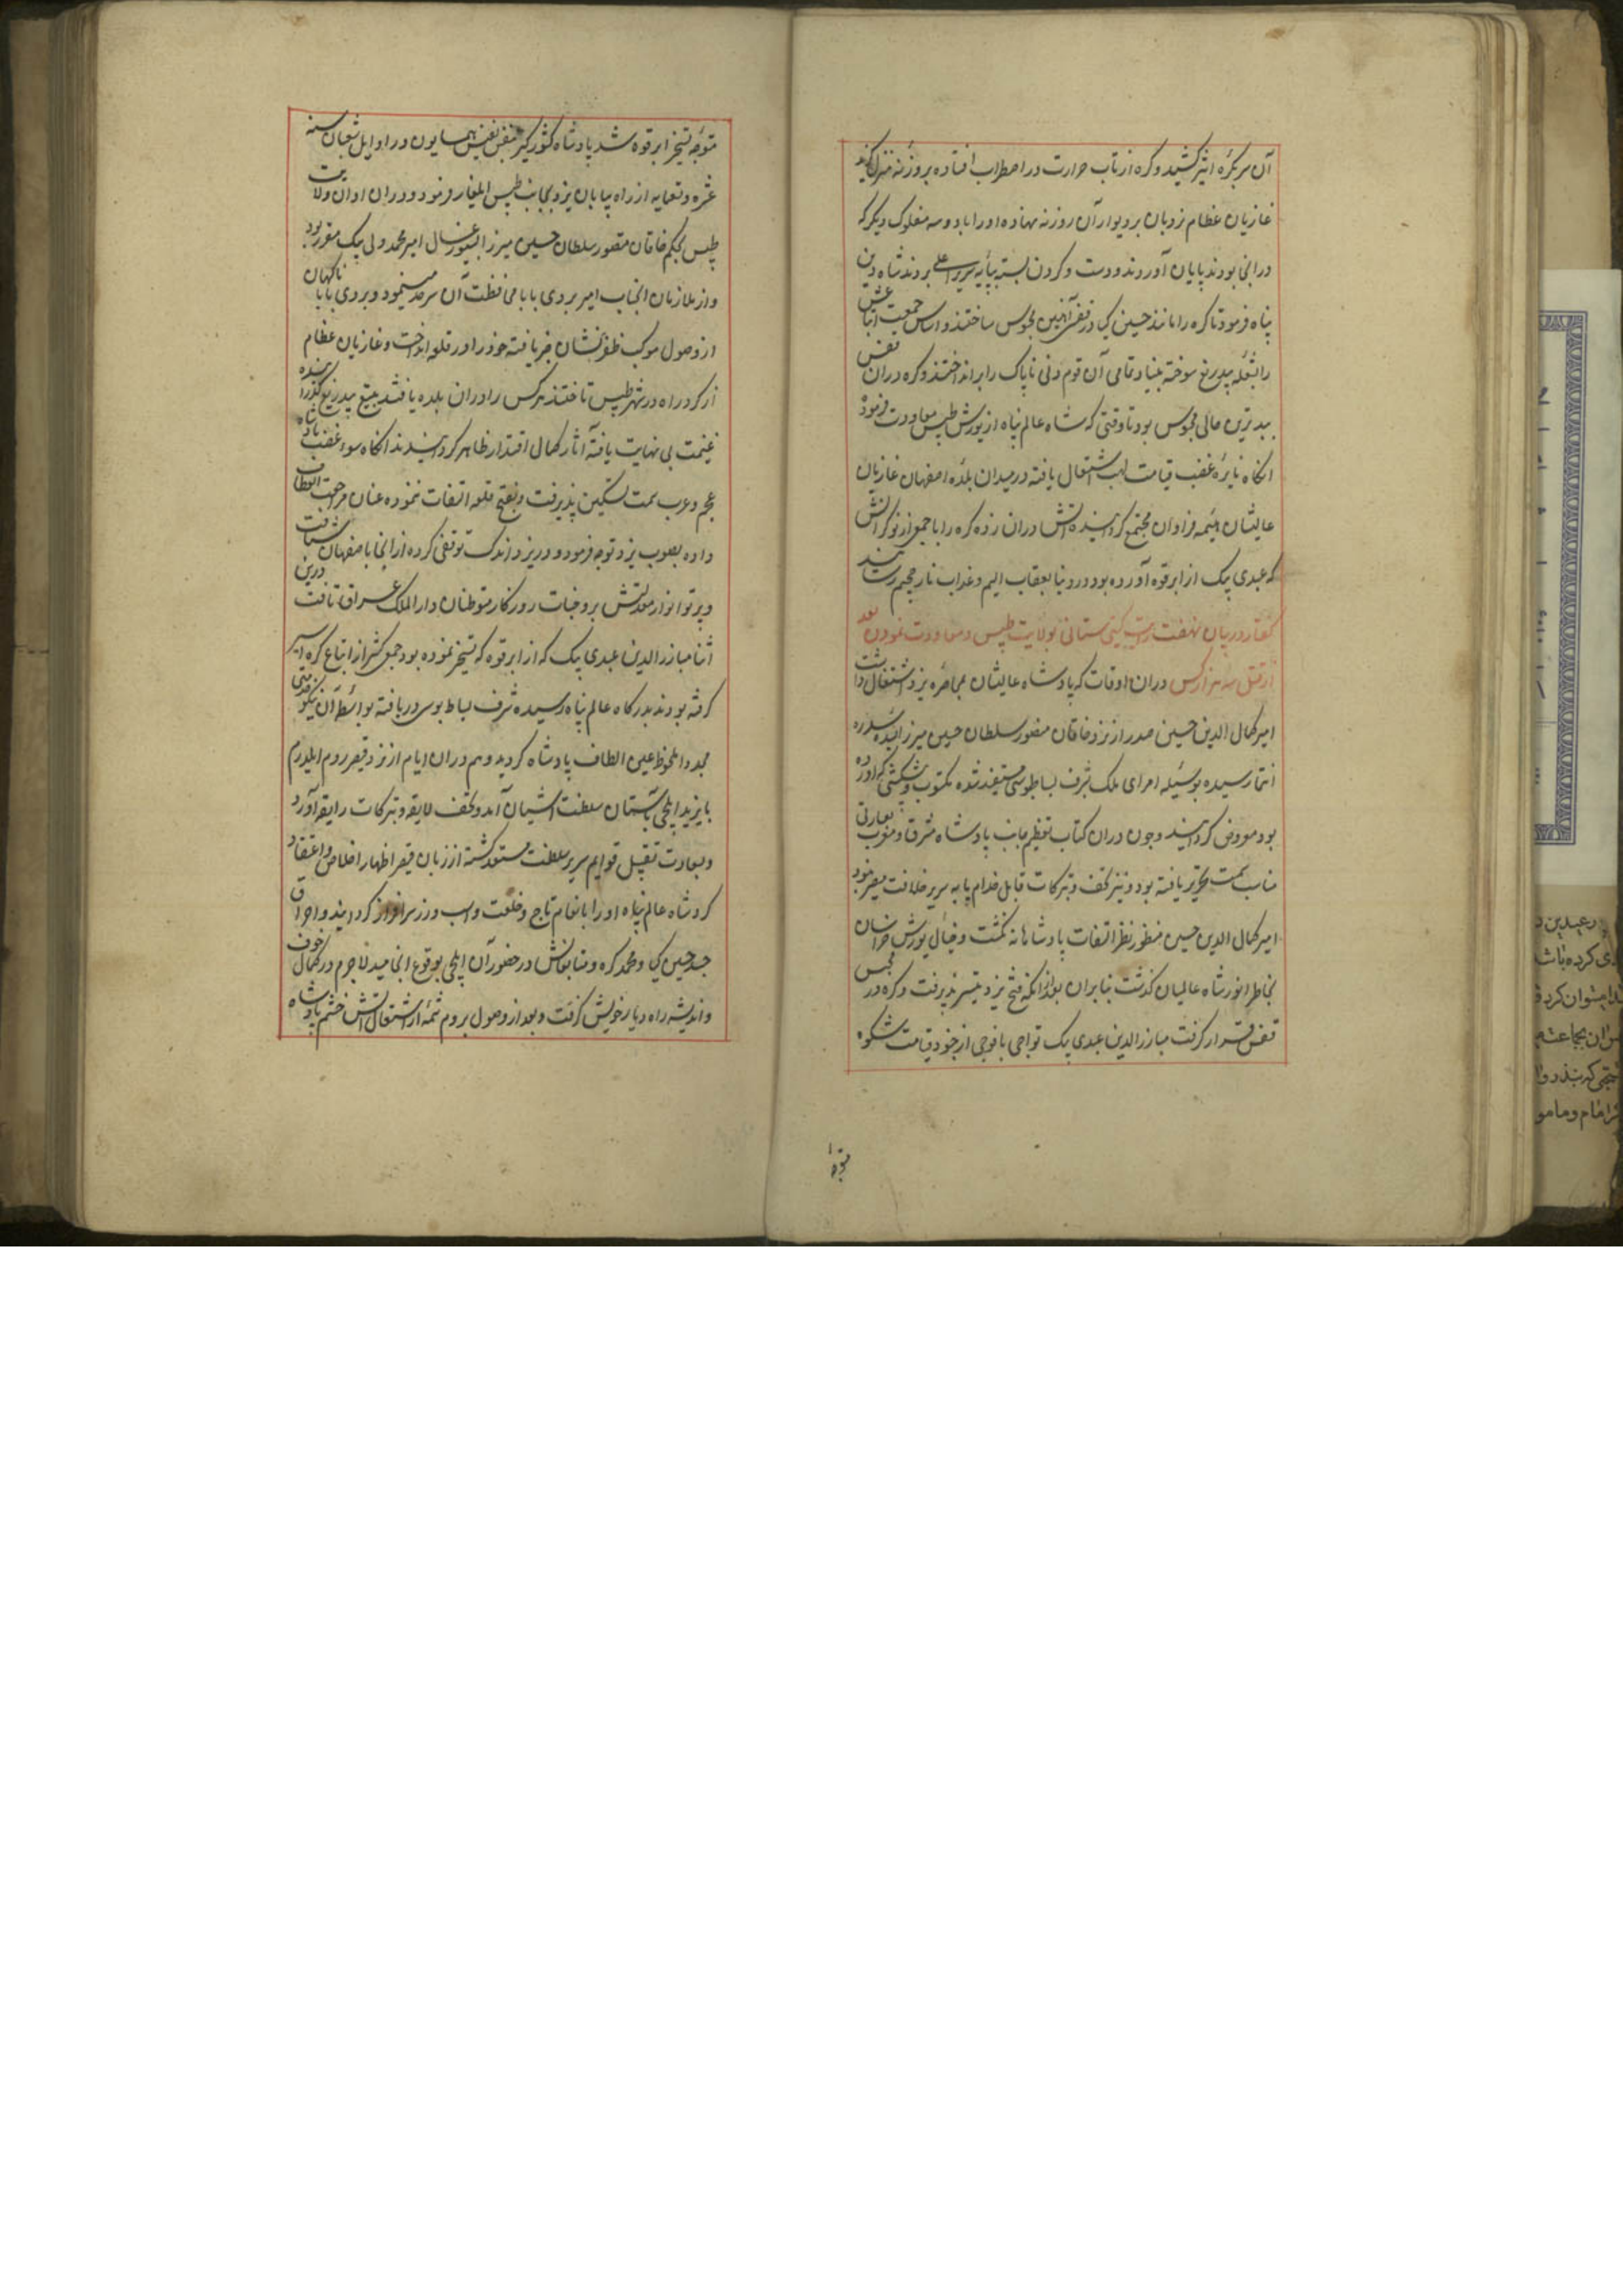 آن سر بکره اثیر کشید و کره از تاب حرارت در اضطراب افتاده بروزنه منزل
غازیان عظام نردبان بر دیوار آن روزنه نهاده او را با دو سه مفلوک دیگر که
در انجا بودند پایان آوردند و دست و کردن بسته بپایه سریر اعلی بردند شاه دین
پناه فرمود تا کره را مانند حسین کیا در قفس آهنین محبوس ساختند و اساس جمعیت اتباعش
را بشعله تیغ بیدریغ سوخته بنیاد تمامی آن قوم دنی ناپاک را برانداختند و کره در آن قفس
ببدترین حالی محبوس بود تا وقتی که شاه عالم پناه از یورش طبس معاودت فرمود
انکاه نایره غضب قیامت لهب اشتعال یافته در میدان بلده اصفهان غازیان
عالیشان هیمه فراوان مجتمع کردانیده آتش در آن زده کره را با جمعی از نوکرانش
که عبدی بیک از ابرقوه آورده بود در دنیا بعقاب الیم و عذاب نار جحیم رسانیدند
کفتار در بیان نهضت رایت کیتی ستانی بولایت طبس و معاودت نمودن بعد
از قتل سه هزار کس در آن اوقات که پادشاه عالیشان بمحاصره یزد اشتغال داشت
امیر کمال الدین حسین صدر از نزد خاقان منصور سلطان حسین میرزا بسده سدره
انتما رسیده بوسیله امرای ملک شرف بساط بوسی مستفید شده مکتوب و پیشکشی که آورده
بود معروض کردانید و چون در آن کتاب تعظیم جانب پادشاه مشرق و مغرب بعبارتی
مناسب سمت تحریر نیافته بود و نیز تحف و تبرکات قابل خدام پایه سریر خلافت مصیر نبود
امیر کمال الدین حسین منظور نظر التفات پادشاهانه نکشت و خیال یورش خراسان
بخاطر انور شاه عالمیان کذشت بنابران بعد از انکه فتح یزد تیسر پذیرفت و کره در محبس
قفس قرار کرفت مبارز الدین عبدی بیک تواجی با فوجی از جنود قیامت شکوه
متوجه
متوجه تسخیر ابرقوه شد پادشاه کشورکیر بنفس نفیس همایون در اوایل شعبان سنه
عشره و تسعمایه از راه بیابان یزد بجانب طبس ایلغار فرمود و در آن اوان ولایت
طبس بحکم خاقان منصور سلطان حسین میرزا بسیورغال امیر محمد ولی بیک مقرر بود
و از ملازمان آنجناب امیر بردی بابا محافظت آن سرحد مینمود و بردی بابا ناکهان
از وصول موکب ظفر نشان خبر یافته خود را در قلعه انداخت و غازیان عظام
از کرد راه در شهر طبس تاختند هر کس را در آن بلده یافتند بتیغ بیدریغ کذرانیده
غنیمت بی نهایت یافته آثار کمال اقتدار ظاهر کردانیدند انکاه سورت غضب پادشاه
عجم و عرب سمت تسکین پذیرفت و بفتح قلعه التفات ننموده عنان مراجعت انعطاف
داده بصوب یزد توجه فرمود و در یزد اندک توقفی کرده از انجا باصفهان شتافت
و پرتو انوار معدلتش بر وجنات روزکار متوطنان دار الملک عراق تافت درین
اثنا مبارز الدین عبدی بیک که از ابرقوه که تسخیر نموده بود جمعی کثیر از اتباع کره اسیر
کرفته بودند بدرکاه عالم پناه رسیده شرف بساط بوسی دریافته بواسطه آن نیکو خدمتی
مجددا ملحوظ عین الطاف پادشاه کردید و هم در آن ایام از نزد قیصر روم ایلدرم
بایزید ایلچی بآستان سلطنت آشیان آمد و تحف لایقه و تبرکات رایقه آورد
و بسعادت تقبیل قوایم سریر سلطنت مستعد کشته از زبان قیصر اظهار اخلاص و اعتقاد
کرد شاه عالم پناه او را بانعام تاج و خلعت و اسب و زر سرافراز کردانید و احراق
جسد حسین کیا و محمد کره و متابعانش در حضور آن ایلچی بوقوع انجامید لاجرم در کمال خوف
و اندیشه راه دیار خویش کرفت و بعد از وصول بروم شمه از اشتعال آتش خشم پادشاه